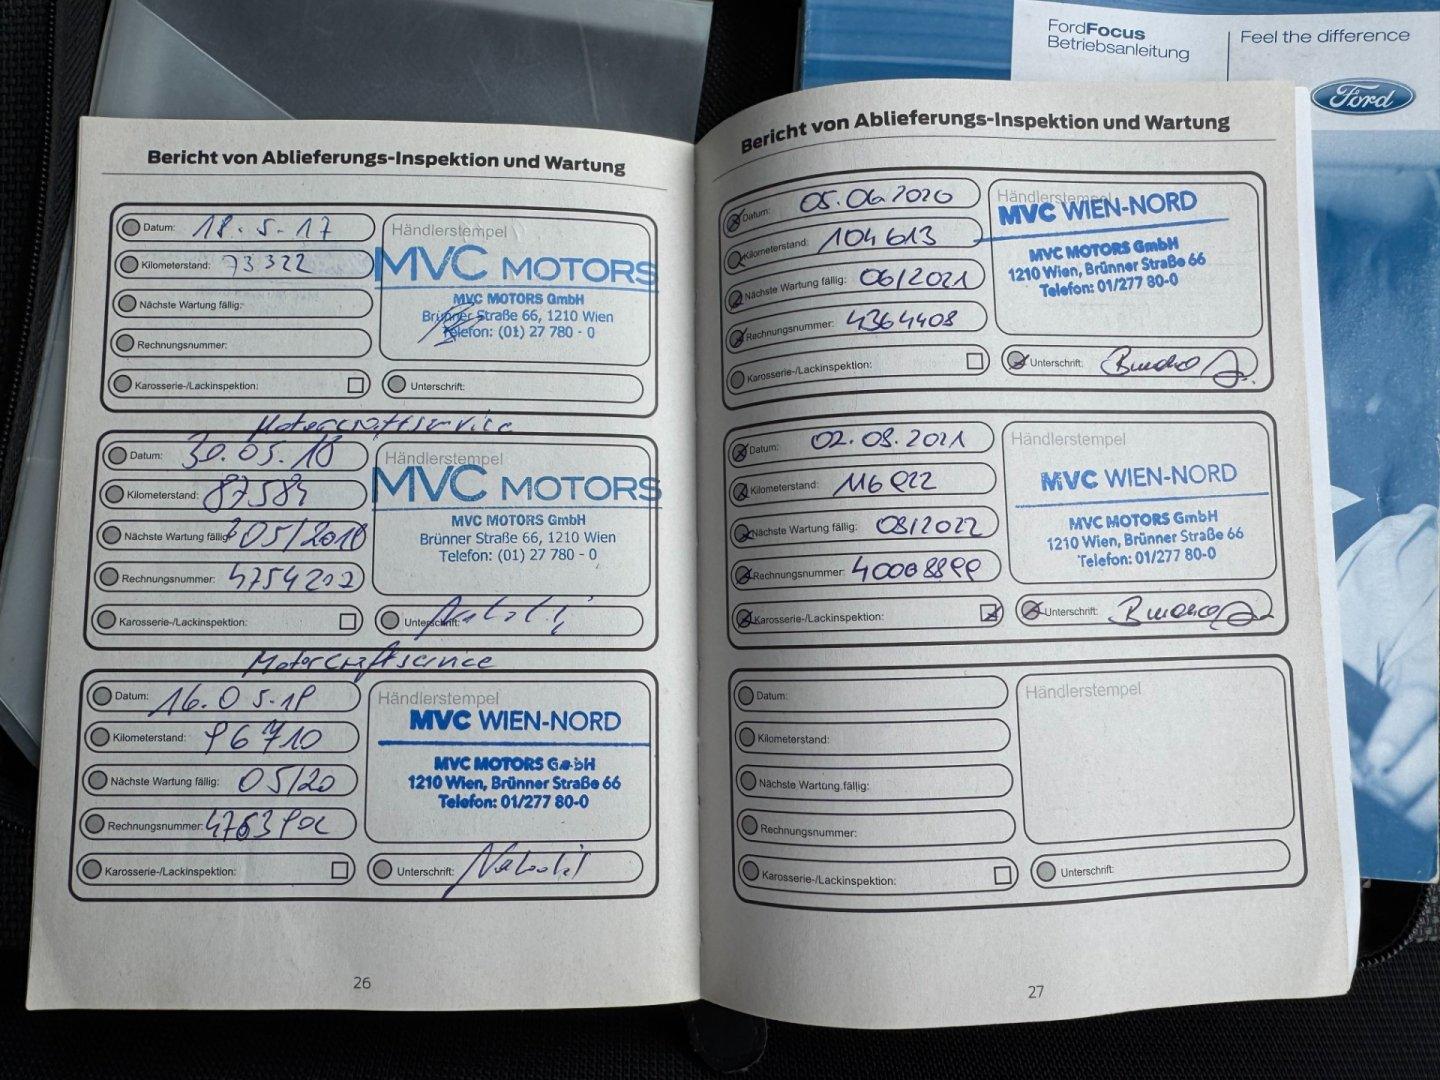 FordFocus
Betriebsanleitung
Feel the difference
Ford
Bericht von Ablieferungs-Inspektion und Wartung
Datum: 18.5.17
Kilometerstand: 73322
Nächste Wartung fällig:
Rechnungsnummer:
Karosserie-/Lackinspektion:
Händlerstempel
MVC MOTORS
MVC MOTORS GmbH
Brünner Straße 66, 1210 Wien
Telefon: (01) 27 780 - 0
Unterschrift:
Motorcraftservice
Datum: 30.05.18
Kilometerstand: 87584
Nächste Wartung fällig: 05/2018
Rechnungsnummer: 4754202
Karosserie-/Lackinspektion:
Händlerstempel
MVC MOTORS
MVC MOTORS GmbH
Brünner Straße 66, 1210 Wien
Telefon: (01) 27 780 - 0
Unterschrift:
Motorcraftservice
Datum: 16.05.19
Kilometerstand: 96710
Nächste Wartung fällig: 05/20
Rechnungsnummer:
Karosserie-/Lackinspektion:
Händlerstempel
MVC WIEN-NORD
MVC MOTORS GmbH
1210 Wien, Brünner Straße 66
Telefon: 01/277 80-0
Unterschrift:
26
Bericht von Ablieferungs-Inspektion und Wartung
Datum: 05.06.2020
Kilometerstand: 104613
Nächste Wartung fällig: 06/2021
Rechnungsnummer: 4364408
Karosserie-/Lackinspektion:
Händlerstempel
MVC WIEN-NORD
MVC MOTORS GmbH
1210 Wien, Brünner Straße 66
Telefon: 01/277 80-0
Unterschrift:
Datum: 02.08.2021
Kilometerstand: 116922
Nächste Wartung fällig: 08/2022
Rechnungsnummer: 40088899
Karosserie-/Lackinspektion:
Händlerstempel
MVC WIEN-NORD
MVC MOTORS GmbH
1210 Wien, Brünner Straße 66
Telefon: 01/277 80-0
Unterschrift:
Datum:
Kilometerstand:
Nächste Wartung fällig:
Rechnungsnummer:
Karosserie-/Lackinspektion:
Händlerstempel
Unterschrift:
27